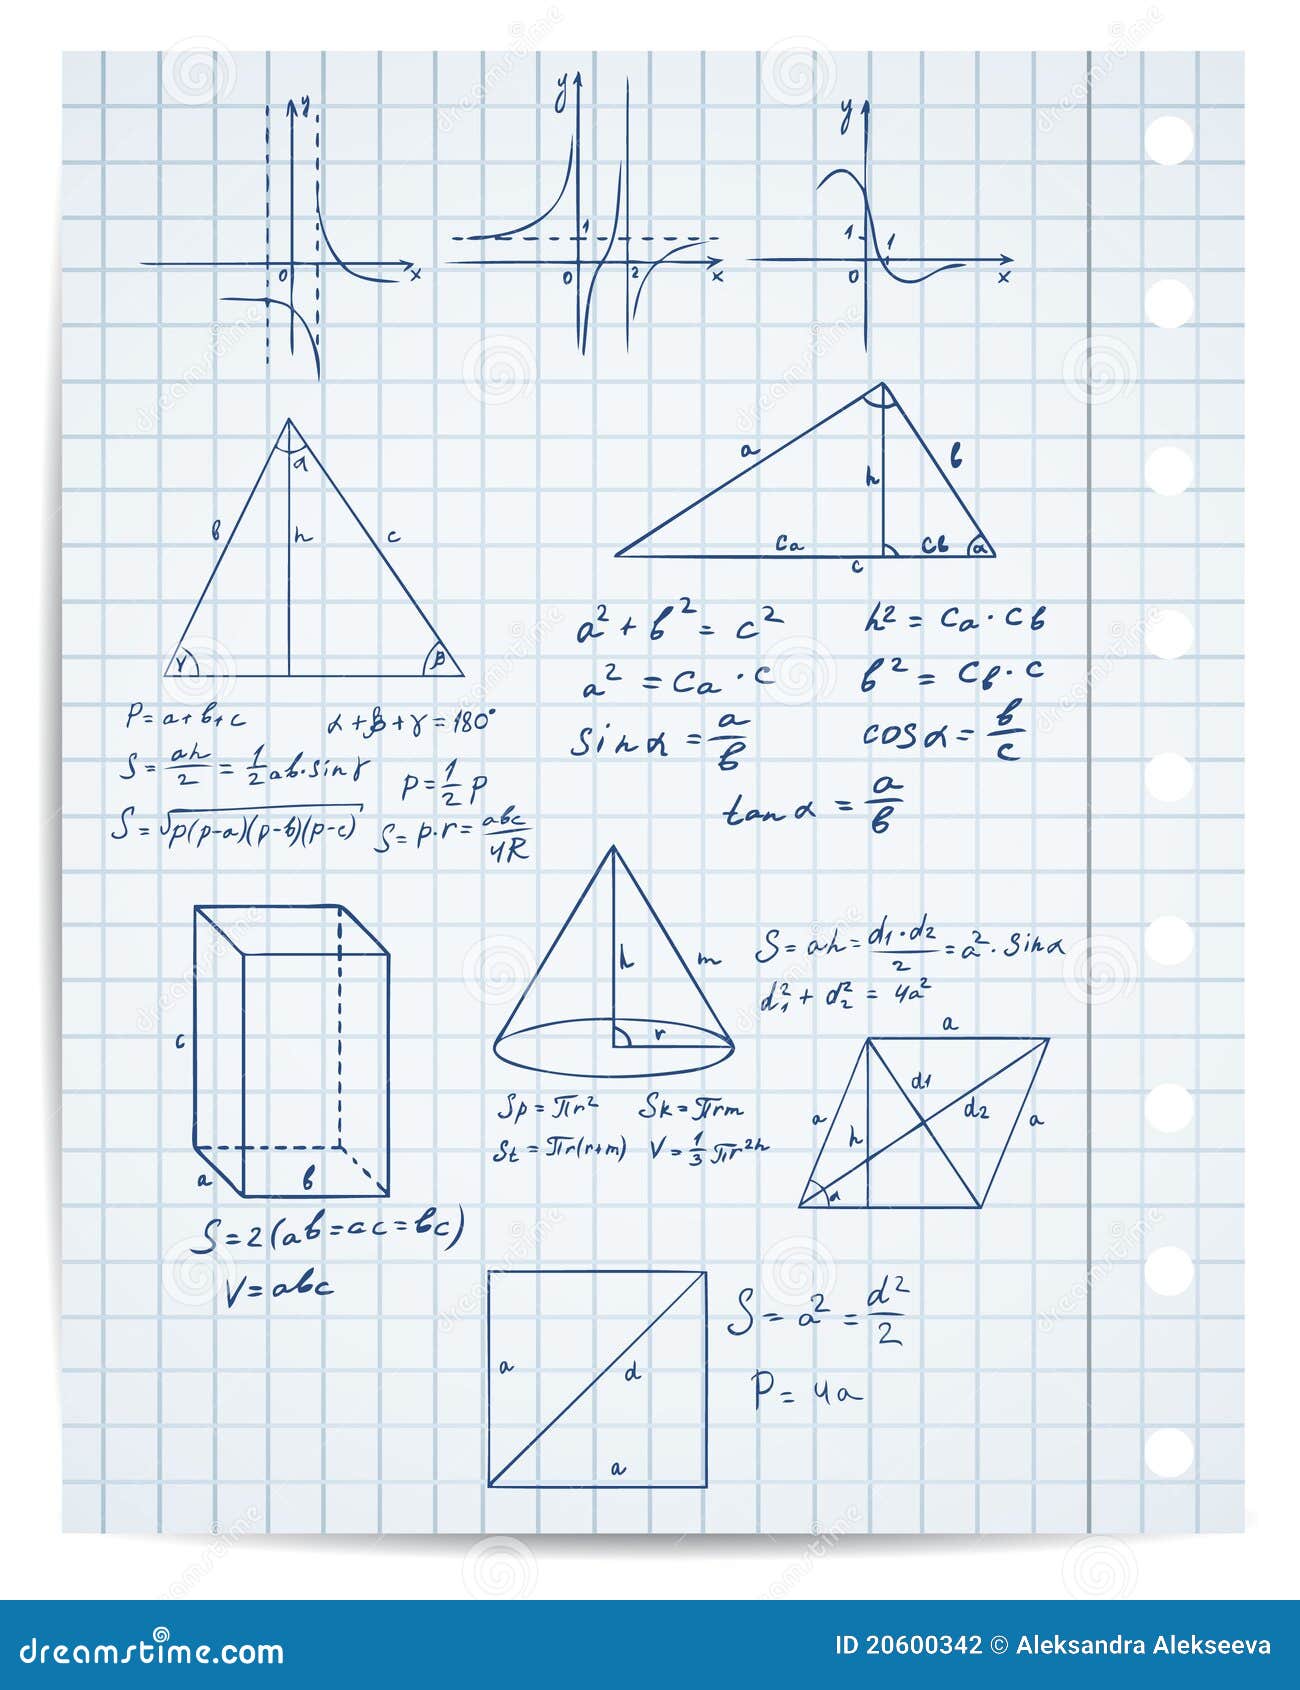 y
0
x
y
1
0
2
x
y
1
1
0
x
α
b
h
c
γ
β
a
b
h
Ca
Cb
α
c
P = a + b + c
α + β + γ = 180°
S = ah/2 = 1/2 ab · sin γ
p = 1/2 P
S = √p(p-a)(p-b)(p-c)
S = p · r = abc/4R
a² + b² = c²
h² = Ca · Cb
a² = Ca · c
b² = Cb · c
sin α = a/b
cos α = b/c
tan α = a/b
c
a
b
S = 2(ab = ac = bc)
V = abc
h
m
r
Sp = πr²
Sk = πrm
St = πr(r+m)
V = 1/3 πr²h
S = ah = d₁ · d₂/2 = a² · sin α
d₁² + d₂² = 4a²
a
d1
d2
a
a
h
α
a
d
a
S = a² = d²/2
P = 4a
dreamstime.com
ID 20600342 © Aleksandra Alekseeva